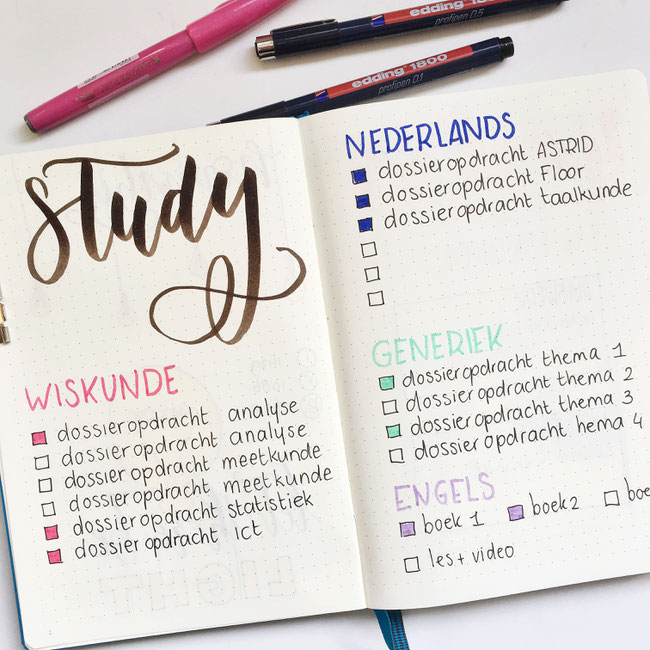 edding 1800
profipen 0.5
edding 1800
profipen 0.1
study
WISKUNDE
dossieropdracht analyse
dossieropdracht analyse
dossieropdracht meetkunde
dossieropdracht meetkunde
dossieropdracht statistiek
dossieropdracht ict
NEDERLANDS
dossieropdracht ASTRID
dossieropdracht Floor
dossieropdracht taalkunde
GENERIEK
dossieropdracht thema 1
dossieropdracht thema 2
dossieropdracht thema 3
dossieropdracht hema 4
ENGELS
boek 1 boek 2 boe
les + video